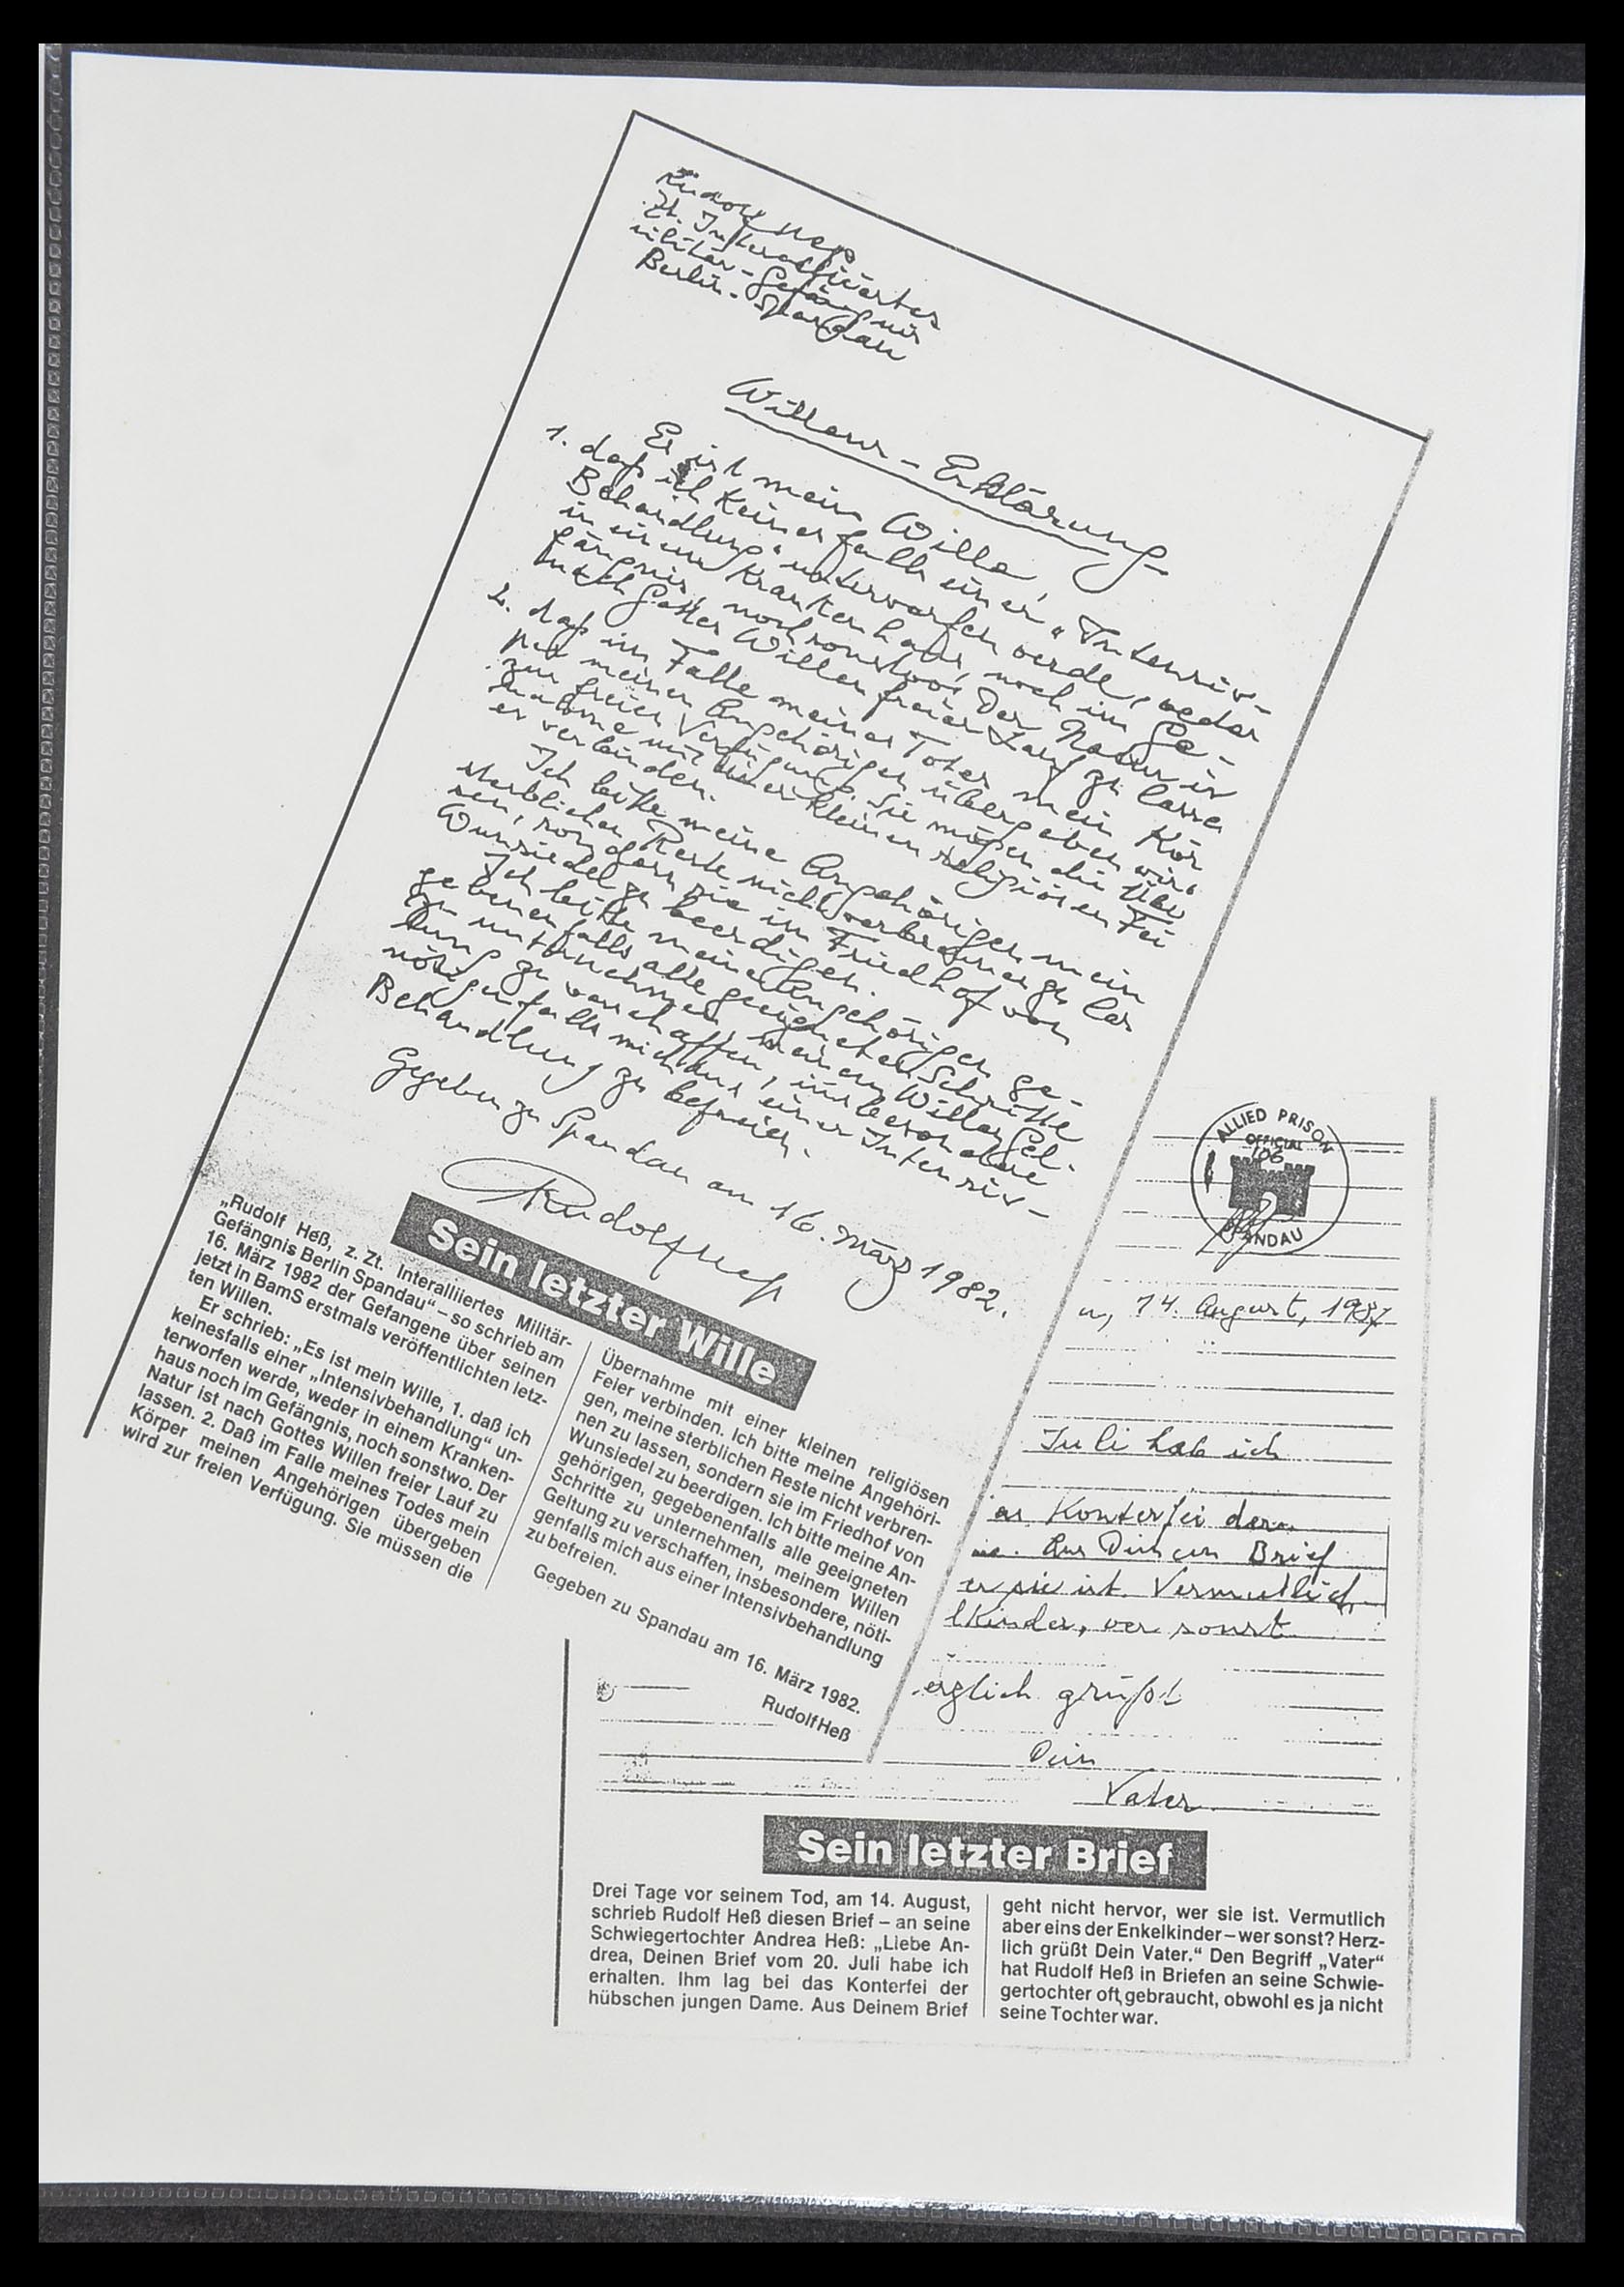 Rudolf Hess
Zt. Interalliiertes
Militär-Gefängnis
Berlin-Spandau
Willens-Erklärung
Es ist mein Wille,
1. daß ich keinesfalls einer „Intensiv-
Behandlung" unterworfen werde, weder
in einem Krankenhaus, noch im Ge-
fängnis, noch sonstwo. Der Natur is
nach Gottes Willen freier Lauf zu lasse
2. daß im Falle meines Todes mein Kör
per meinen Angehörigen übergeben wird
zur freien Verfügung. Sie mögen die Über
nahme mit einer kleinen religiösen Fei
er verbinden.
Ich bitte meine Angehörigen, mein
sterblichen Reste nicht verbrennen zu las
sen, sondern sie im Friedhof von
Wunsiedel zu beerdigen.
Ich bitte meine Angehörigen, ge-
gebenenfalls alle geeigneten Schritte
zu unternehmen, meinem Willen Gel-
tung zu verschaffen, insbesondere
nötigenfalls mich aus einer Intensiv-
Behandlung zu befreien.
Gegeben zu Spandau am 16. März 1982.
Rudolf Hess
Sein letzter Wille
„Rudolf Heß, z. Zt. Interalliiertes Militär-
Gefängnis Berlin Spandau“ – so schrieb am
16. März 1982 der Gefangene über seinen
jetzt in BamS erstmals veröffentlichten letz-
ten Willen.
Er schrieb: „Es ist mein Wille, 1. daß ich
keinesfalls einer „Intensivbehandlung“ un-
terworfen werde, weder in einem Kranken-
haus noch im Gefängnis, noch sonstwo. Der
Natur ist nach Gottes Willen freier Lauf zu
lassen. 2. Daß im Falle meines Todes mein
Körper meinen Angehörigen übergeben
wird zur freien Verfügung. Sie müssen die
Übernahme mit einer kleinen religiösen
Feier verbinden. Ich bitte meine Angehöri-
gen, meine sterblichen Reste nicht verbren-
nen zu lassen, sondern sie im Friedhof von
Wunsiedel zu beerdigen. Ich bitte meine An-
gehörigen, gegebenenfalls alle geeigneten
Schritte zu unternehmen, meinem Willen
Geltung zu verschaffen, insbesondere, nöti-
genfalls mich aus einer Intensivbehandlung
zu befreien.
Gegeben zu Spandau am 16. März 1982.
Rudolf Heß
ALLIED PRISON
OFFICIAL
106
SPANDAU
n, 14. August, 1987
Juli hab ich
as Konterfei der
Aus Deinem Brief
er sie ist. Vermutlich
lkinder, wer sonst
erzlich grüßt
Dein
Vater
Sein letzter Brief
Drei Tage vor seinem Tod, am 14. August,
schrieb Rudolf Heß diesen Brief – an seine
Schwiegertochter Andrea Heß: „Liebe An-
drea, Deinen Brief vom 20. Juli habe ich
erhalten. Ihm lag bei das Konterfei der
hübschen jungen Dame. Aus Deinem Brief
geht nicht hervor, wer sie ist. Vermutlich
aber eins der Enkelkinder – wer sonst? Herz-
lich grüßt Dein Vater.“ Den Begriff „Vater“
hat Rudolf Heß in Briefen an seine Schwie-
gertochter oft gebraucht, obwohl es ja nicht
seine Tochter war.